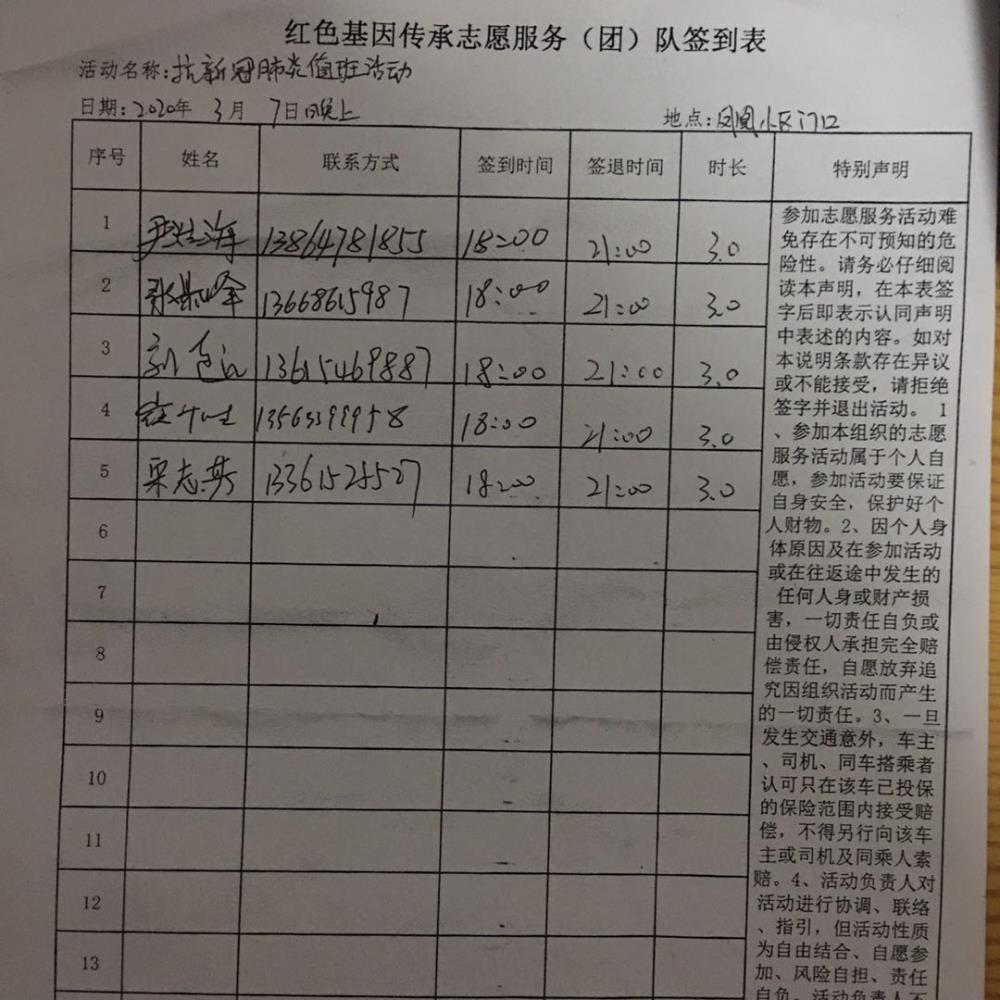 红色基因传承志愿服务（团）队签到表
活动名称:抗新冠肺炎值班活动
日期:2020年 3月 7日晚上 地点:凤凰小区门口
序号 姓名 联系方式 签到时间 签退时间 时长 特别声明
1 13864781855 18:00 21:00 3.0
2 13668615987 18:00 21:00 3.0
3 13615469887 18:00 21:00 3.0
4 18:00 21:00 3.0
5 宋志英 13361525527 18:00 21:00 3.0
6
7
8
9
10
11
12
13
参加志愿服务活动难
免存在不可预知的危
险性。请务必仔细阅
读本声明，在本表签
字后即表示认同声明
中表述的内容。如对
本说明条款存在异议
或不能接受，请拒绝
签字并退出活动。 1
、参加本组织的志愿
服务活动属于个人自
愿，参加活动要保证
自身安全，保护好个
人财物。2、因个人身
体原因及在参加活动
或在往返途中发生的
任何人身或财产损
害，一切责任自负或
由侵权人承担完全赔
偿责任，自愿放弃追
究因组织活动而产生
的一切责任。3、一旦
发生交通意外，车主
、司机、同车搭乘者
认可只在该车已投保
的保险范围内接受赔
偿，不得另行向该车
主或司机及同乘人索
赔。4、活动负责人对
活动进行协调、联络
、指引，但活动性质
为自由结合、自愿参
加、风险自担、责任
自负。活动负责人不